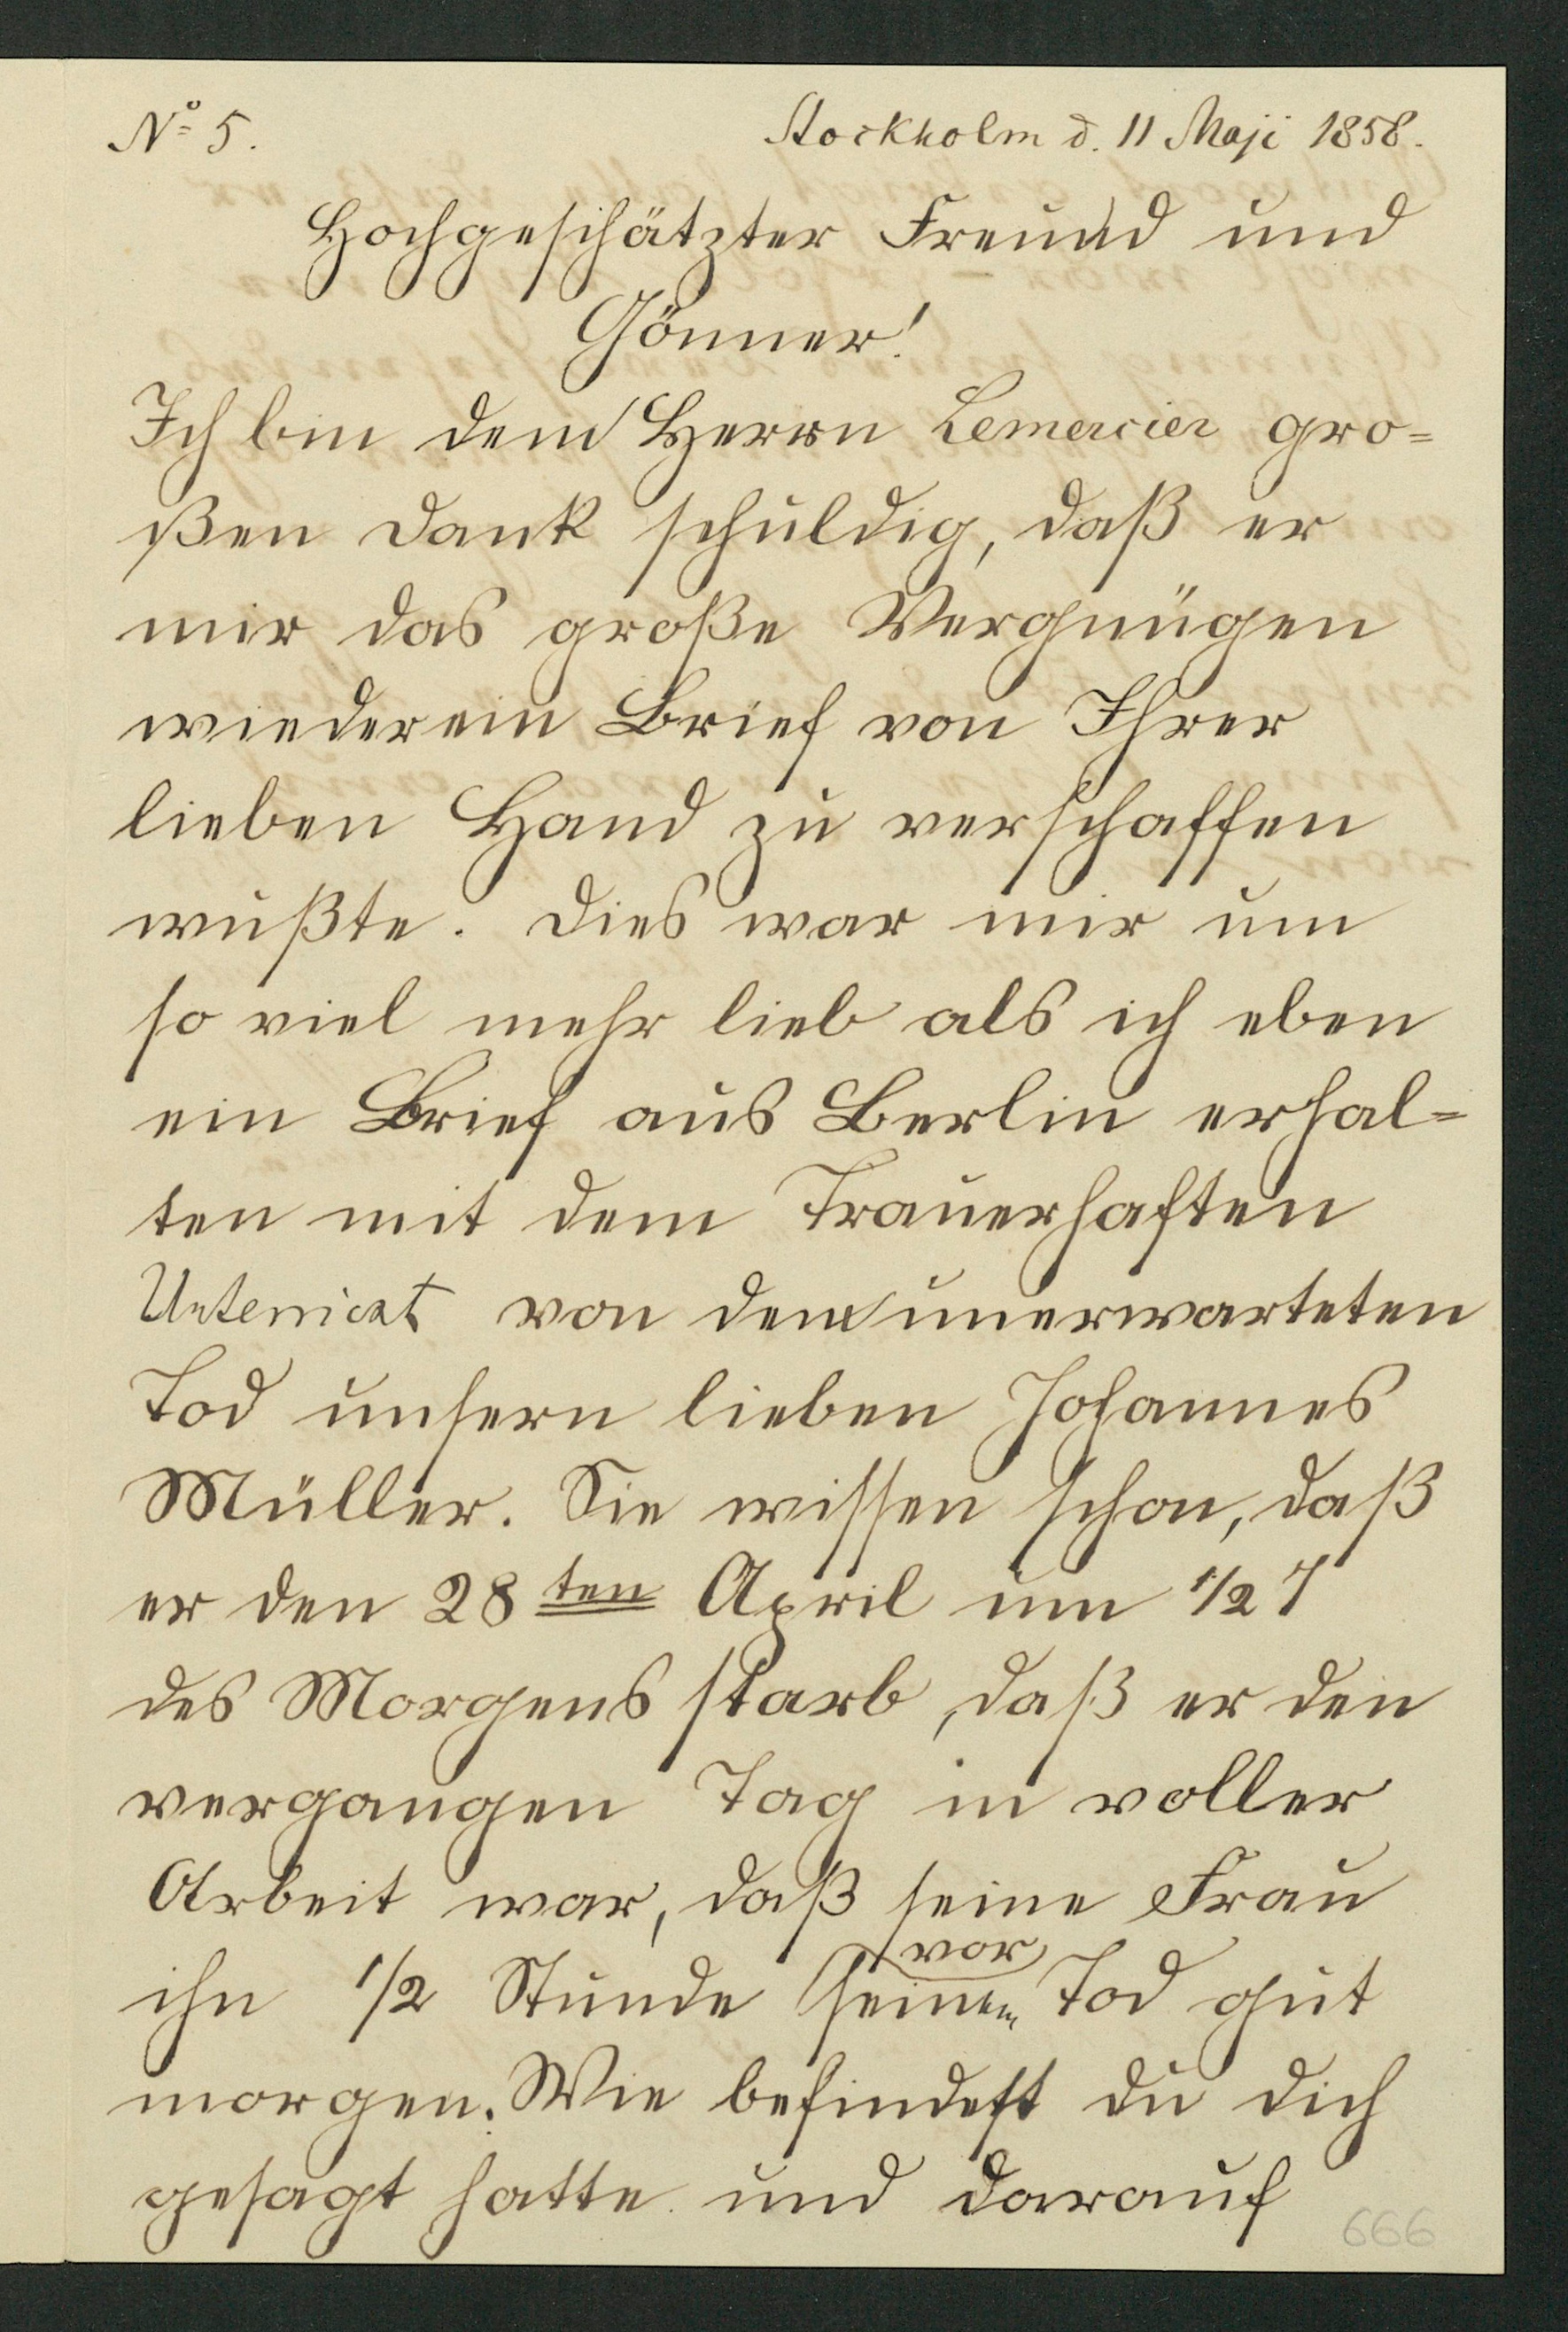 No 5.
Stockholm d. 11 Maji 1858.
Hochgeschätzter Freund und
Gönner!
Ich bin dem Herrn Lemercier gro=
ßen Dank schuldig, daß er
mir das große Vergnügen
wieder ein Brief von Ihrer
lieben Hand zu verschaffen
wußte. Dies war mir um
so viel mehr lieb als ich eben
ein Brief aus Berlin erhal=
ten mit dem Trauerhaften
Unterricht von dem unerwarteten
Tod unsern lieben Johannes
Müller. Sie wissen schon, daß
er den 28ten April um 1/2 7
des Morgens starb, daß er den
vergangen Tag in voller
Arbeit war, daß seine Frau
vor
ihn 1/2 Stunde seinem Tod gut
morgen. Wie befindest du dich
gesagt hatte und darauf
666